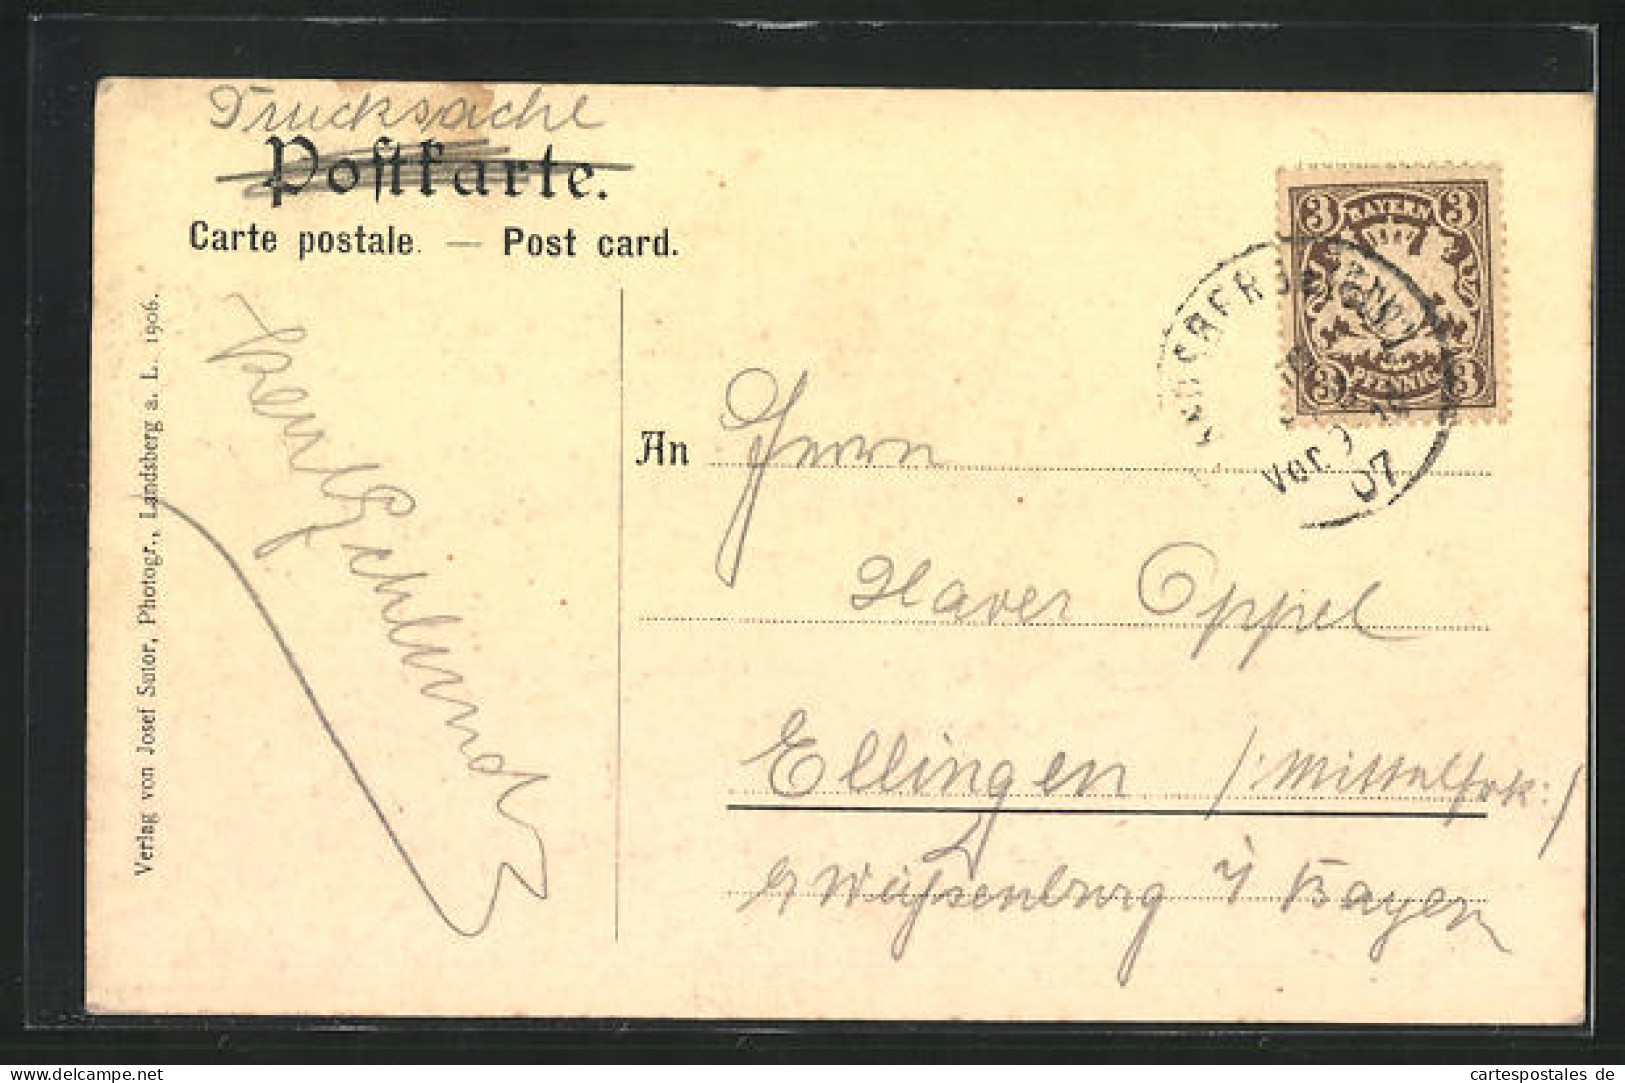 Drucksache
Postkarte.
Carte postale. — Post card.
Verlag von Josef Sutor, Photogr., Landsberg a. L. 1906.
BAYERN
3 3
3 3
PFENNIG
LANDSBERG
Vor. 9
07
An Herrn
Xaver Oppel
Ellingen /:Mittelfrk:/
b/ Weißenburg i/ Bayern
delcampe.net
cartespostales de